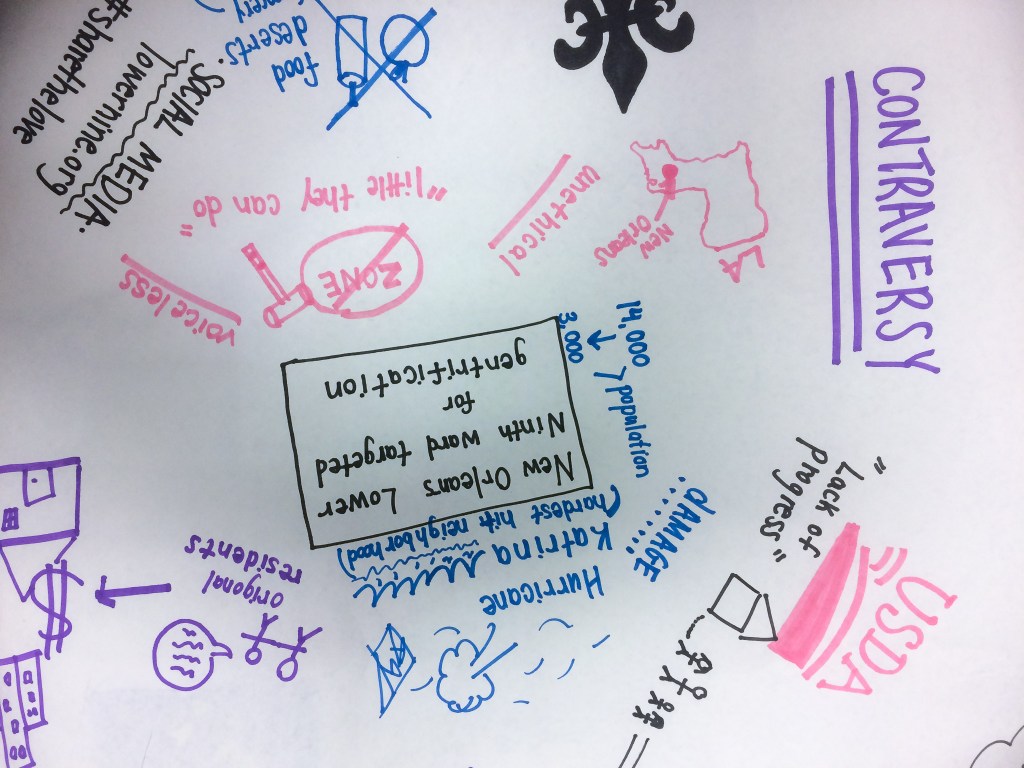 New Orleans Lower
Ninth ward targeted
for
gentrification
Hurricane
Katrina
(hardest hit neighborhood)
DAMAGE
14,000
3,000
population
USDA
"Lack of
progress"
CONTRAVERSY
LA
New
Orleans
unethical
"little they can do"
ZONE
voiceless
food
deserts.
SOCIAL MEDIA.
lowernine.org
#sharethelove
origonal
residents
$